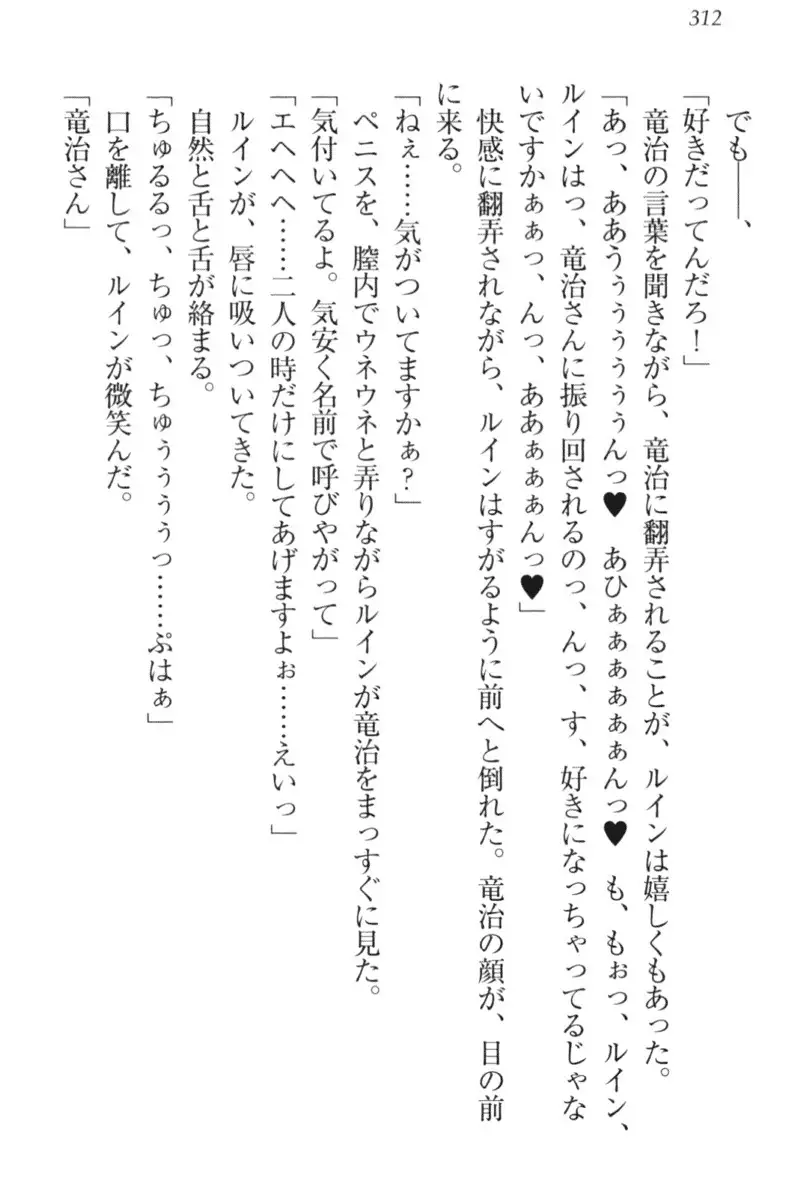 312
でも――、
「好きだってんだろ！」
竜治の言葉を聞きながら、竜治に翻弄されることが、ルインは嬉しくもあった。
「あっ、ああうぅぅぅぅぅぅんっ♥　あひぁぁぁぁぁぁんっ♥　も、もぉっ、ルイン、
ルインはっ、竜治さんに振り回されるのっ、んっ、す、好きになっちゃってるじゃな
いですかぁぁっ、んっ、ああぁぁぁんっ♥」
快感に翻弄されながら、ルインはすがるように前へと倒れた。竜治の顔が、目の前
に来る。
「ねぇ……気がついてますかぁ？」
ペニスを、膣内でウネウネと弄りながらルインが竜治をまっすぐに見た。
「気付いてるよ。気安く名前で呼びやがって」
「エヘヘヘ……二人の時だけにしてあげますよぉ……えいっ」
ルインが、唇に吸いついてきた。
自然と舌と舌が絡まる。
「ちゅるるっ、ちゅっ、ちゅぅぅぅぅっ……ぷはぁ」
口を離して、ルインが微笑んだ。
「竜治さん」